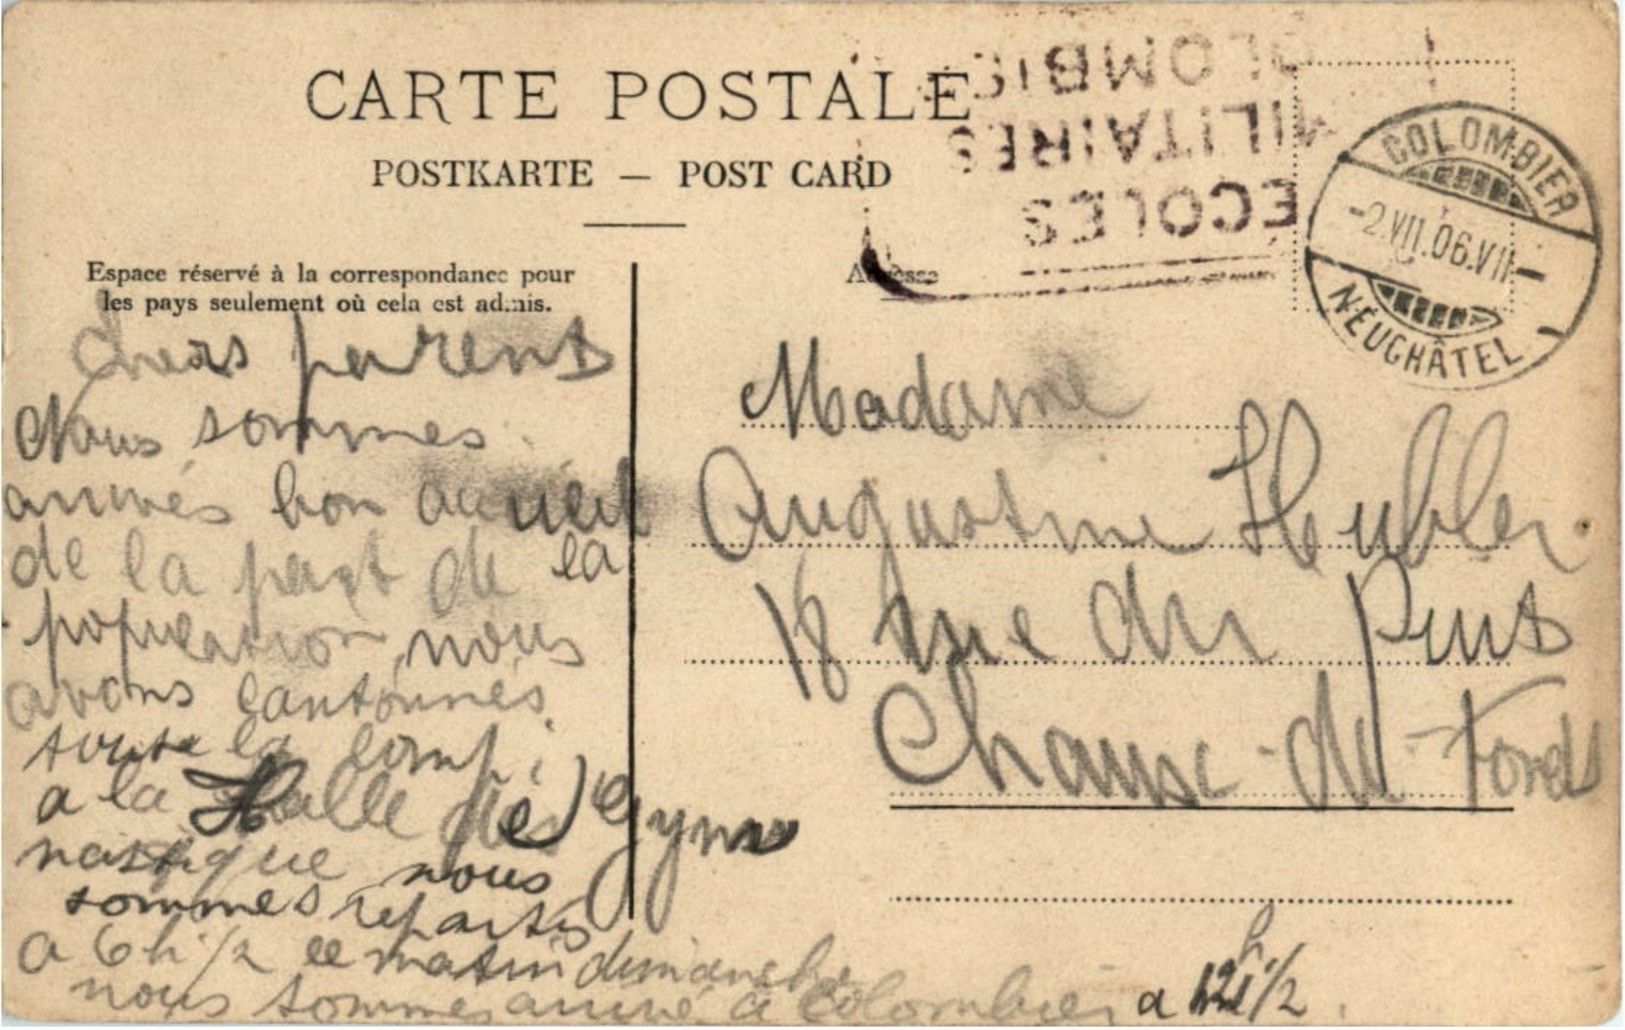 CARTE POSTALE
POSTKARTE — POST CARD
Espace réservé à la correspondance pour
les pays seulement où cela est admis.
Adresse
ÉCOLES
MILITAIRES
COLOMBIER
COLOMBIER
-2.VII.06.VII-
NEUCHÂTEL
Chers parents
Nous sommes
arrivés bon accueil
de la part de la
population, nous
avons cantonnés
toute la comp.
a la Halle de Gym
nastique nous
sommes repartis
a 6 h 1/2 ce matin dimanche
nous sommes arrivé a Colombier a 12 h 1/2.
Madame
Augustine Hubler
18 rue du Puits
Chaux-de-Fonds